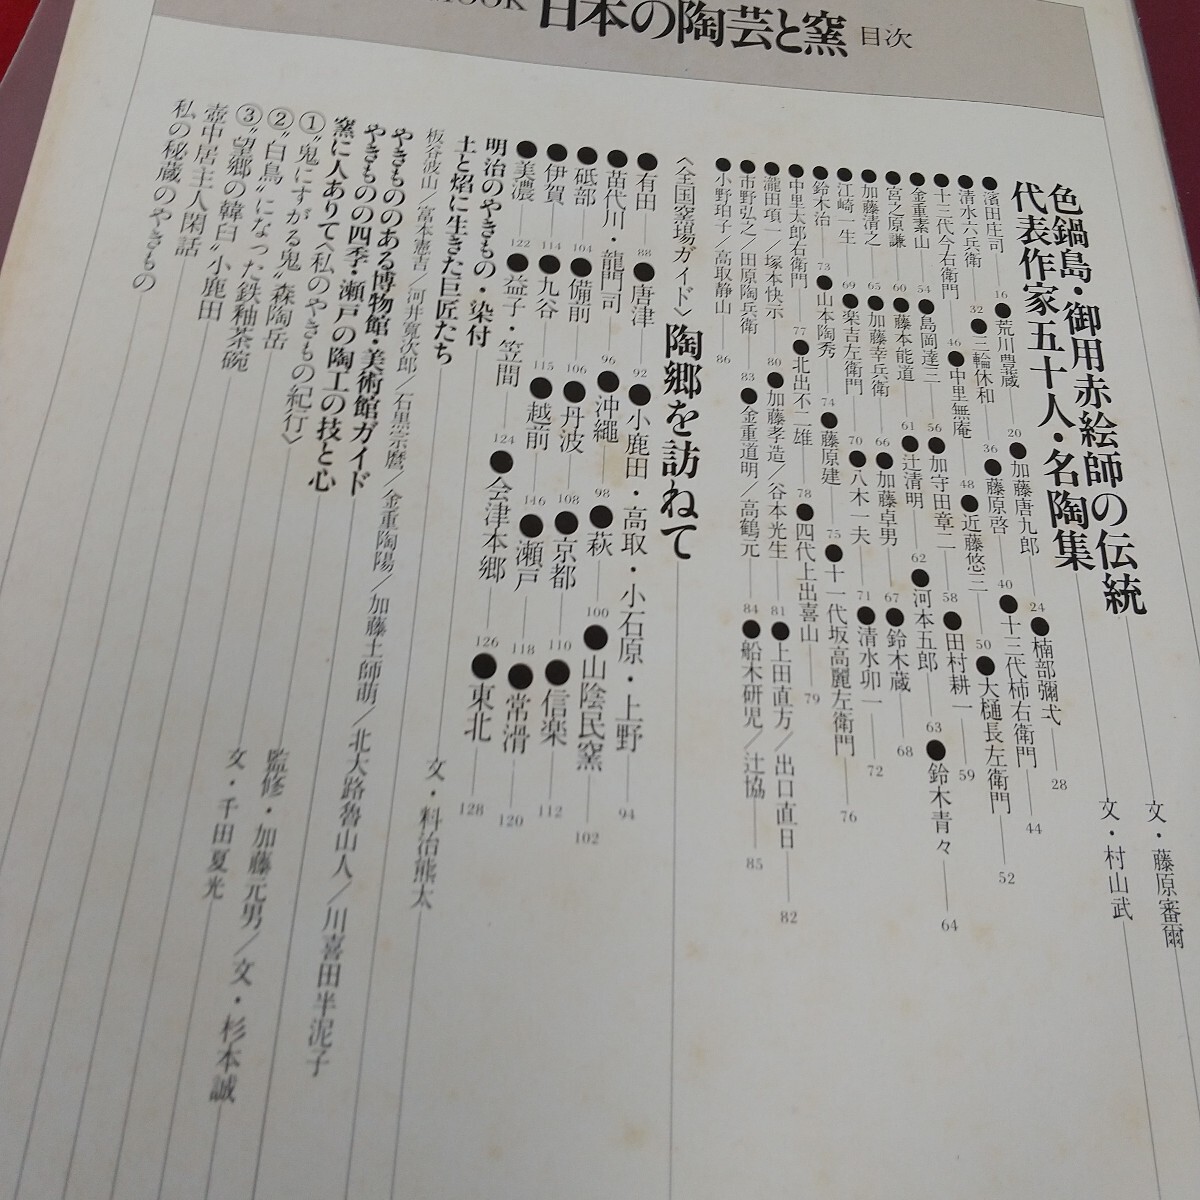 MOOK 日本の陶芸と窯 目次
色鍋島・御用赤絵師の伝統 文・藤原審爾
代表作家五十人・名陶集 文・村山武
●濱田庄司 16 ●荒川豊蔵 20 ●加藤唐九郎 24 ●楠部彌弌 28
●清水六兵衛 32 ●三輪休和 36 ●藤原啓 40 ●十三代柿右衛門 44
●十三代今右衛門 46 ●中里無庵 48 ●近藤悠三 50 ●大樋長左衛門 52
●金重素山 54 ●島岡達三 56 ●加守田章二 58 ●田村耕一 59
●宮之原謙 60 ●藤本能道 61 ●辻清明 62 ●河本五郎 63 ●鈴木青々 64
●加藤清之 65 ●加藤幸兵衛 66 ●加藤卓男 67 ●鈴木蔵 68
●江崎一生 69 ●楽吉左衛門 70 ●八木一夫 71 ●清水卯一 72
●鈴木治 73 ●山本陶秀 74 ●藤原建 75 ●十一代坂高麗左衛門 76
●中里太郎右衛門 77 ●北出不二雄 78 ●四代上出喜山 79
●瀧田項一/塚本快示 80 ●加藤孝造/谷本光生 81 ●上田直方/出口直日 82
●市野弘之/田原陶兵衛 83 ●金重道明/高鶴元 84 ●船木研児/辻協 85
●小野珀子/高取静山 86
〈全国窯場ガイド〉陶郷を訪ねて
●有田 88 ●唐津 92 ●小鹿田・高取・小石原・上野 94
●苗代川・龍門司 96 ●沖縄 98 ●萩 100 ●山陰民窯 102
●砥部 104 ●備前 106 ●丹波 108 ●京都 110 ●信楽 112
●伊賀 114 ●九谷 115 ●越前 146 ●瀬戸 118 ●常滑 120
●美濃 122 ●益子・笠間 124 ●会津本郷 126 ●東北 128
明治のやきもの・染付 文・料治熊太
土と焔に生きた巨匠たち
板谷波山/富本憲吉/河井寛次郎/石黒宗麿/金重陶陽/加藤土師萌/北大路魯山人/川喜田半泥子
やきもののある博物館・美術館ガイド
やきものの四季・瀬戸の陶工の技と心 監修・加藤元男/文・杉本誠
窯に人ありて〈私のやきもの紀行〉 文・千田夏光
①“鬼にすがる鬼”森陶岳
②“白鳥”になった鉄釉茶碗
③“望郷の韓臼”小鹿田
壺中居主人閑話
私の秘蔵のやきもの